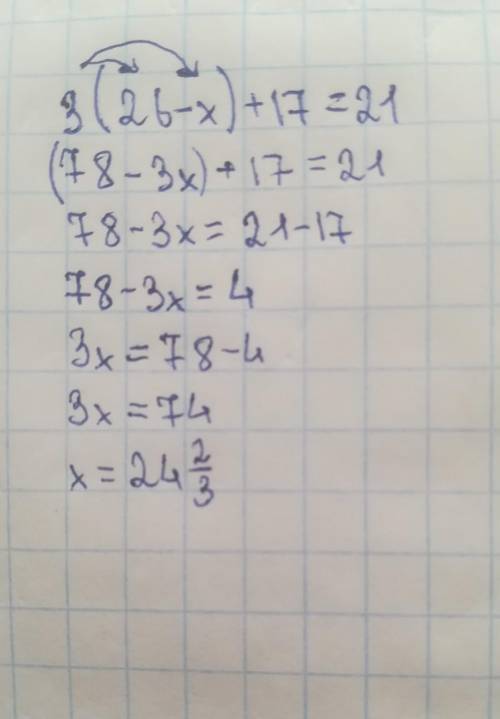 3(26-x)+17=21
(78-3x)+17=21
78-3x=21-17
78-3x=4
3x=78-4
3x=74
x=24 2/3